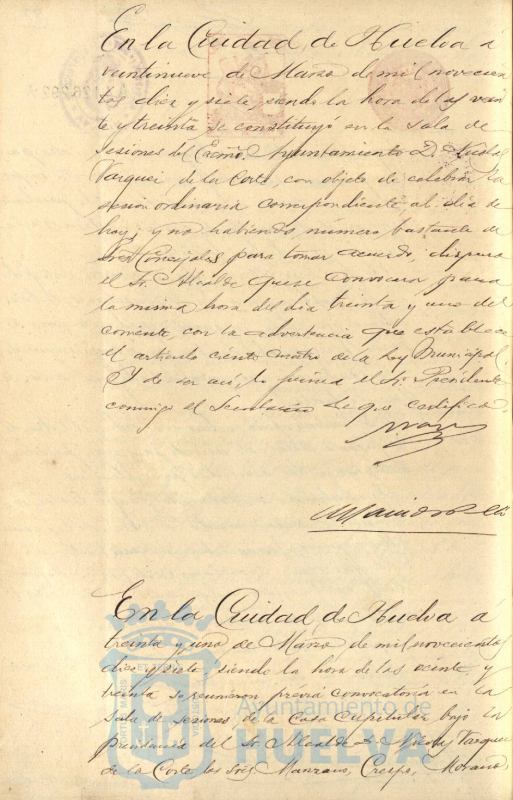 En la Ciudad de Huelva á
veintinueve de Marzo de mil novecien
tos diez y siete siendo la hora de las vein
te y treinta se constituyó en la Sala de
Sesiones del Excmo. Ayuntamiento D. Nicolas
Vazquez de la Corte, con objeto de celebrar la
sesión ordinaria correspondiente al dia de
hoy; y no habiendo número bastante de
Sres Concejales para tomar acuerdo, dispuso
el Sr. Alcalde que se convocara para
la misma hora del dia treinta y uno del
corriente, con la advertencia que establece
el articulo ciento cuatro de la ley Municipal.
Y de ser asi, lo firma el Sr. Presidente
conmigo el Secretario de que certifico.
En la Ciudad de Huelva á
treinta y uno de Marzo de mil novecientos
diez y siete siendo la hora de las veinte y
treinta se reunieron previa convocatoria en la
Sala de Sesiones de la Casa Capitular bajo la
presidencia del Sr. Alcalde D. Nicolas Vazquez
de la Corte los Sres Manzano, Crespo, Morano,
Ayuntamiento de
HUELVA